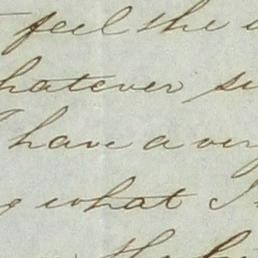 feel the
whatever su
I have a ver
g what I
the